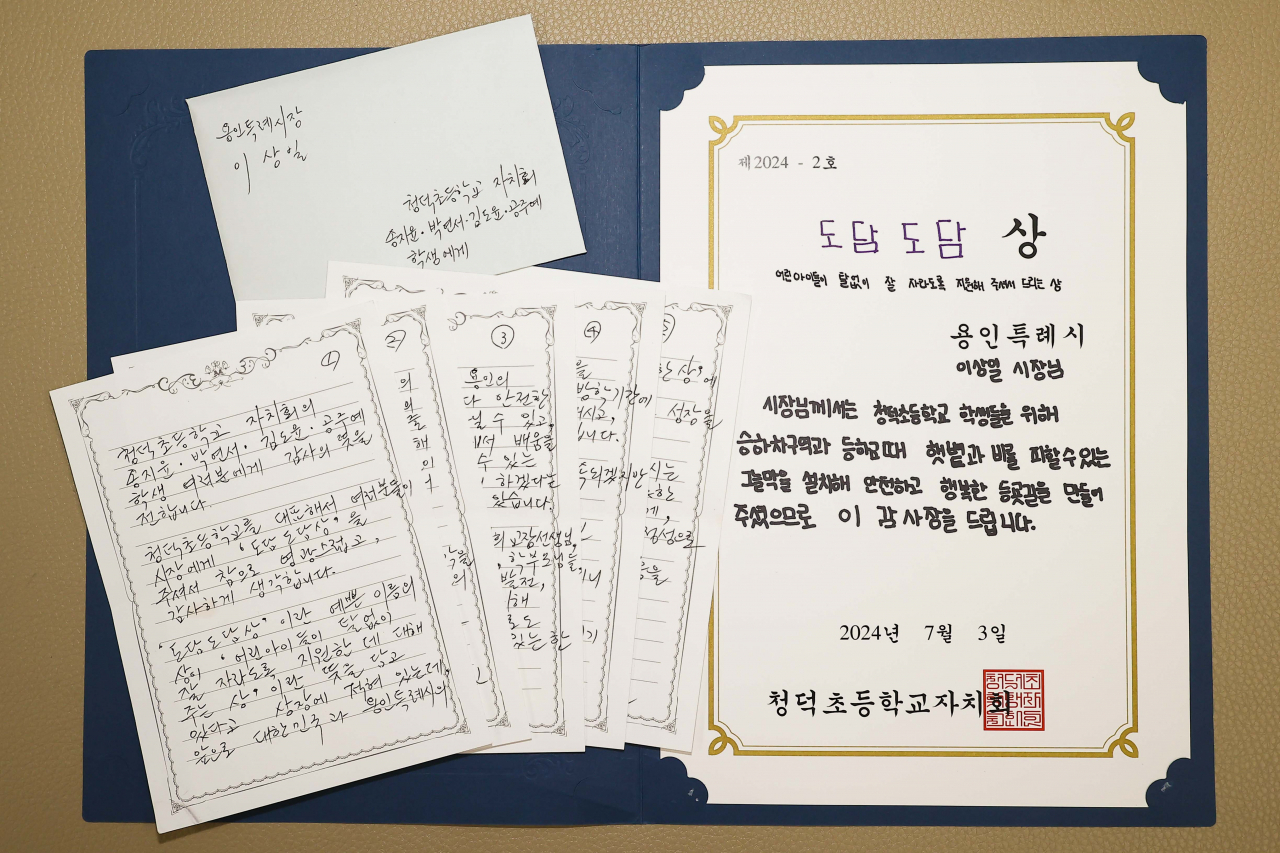 용인특례시장
이 상 일
청덕초등학교 자치회
송지윤·박연서·김도윤·공주예
학생에게
①
청덕초등학교 자치회의
송지윤·박연서·김도윤·공주예
학생 여러분에게 감사의 뜻을
전합니다.
청덕초등학교를 대표해서 여러분들이
시장에게 '도담도담상'을
주셔서 참으로 영광스럽고,
감사하게 생각합니다.
'도담도담상'이란 예쁜 이름의
상이 '어린아이들이 탈없이
잘 자라도록 지원한 데 대해
주는 상'이란 뜻을 담고
있다고 상장에 적혀 있는데,
앞으로 대한민국과 용인특례시의
②
의
의
을
해
의
③
용인의
다 안전한
닐 수 있고,
배움을
수 있는
하겠다는
있습니다.
희 교장선생님,
학부모님들
발전,
해
로도
있는 한
④
을
방학기간에
시고,
니다.
득되겠지만
이니
기
한 상'에
성장을
시는
한
에,
정성으로
을
제 2024 - 2 호
도담도담 상
어린아이들이 탈없이 잘 자라도록 지원해 주셔서 드리는 상
용인특례시
이상일 시장님
시장님께서는 청덕초등학교 학생들을 위해
승하차구역과 등하교때 햇볕과 비를 피할 수 있는
그늘막을 설치해 안전하고 행복한 등굣길을 만들어
주셨으므로 이 감사장을 드립니다.
2024년 7월 3일
청덕초등학교자치회